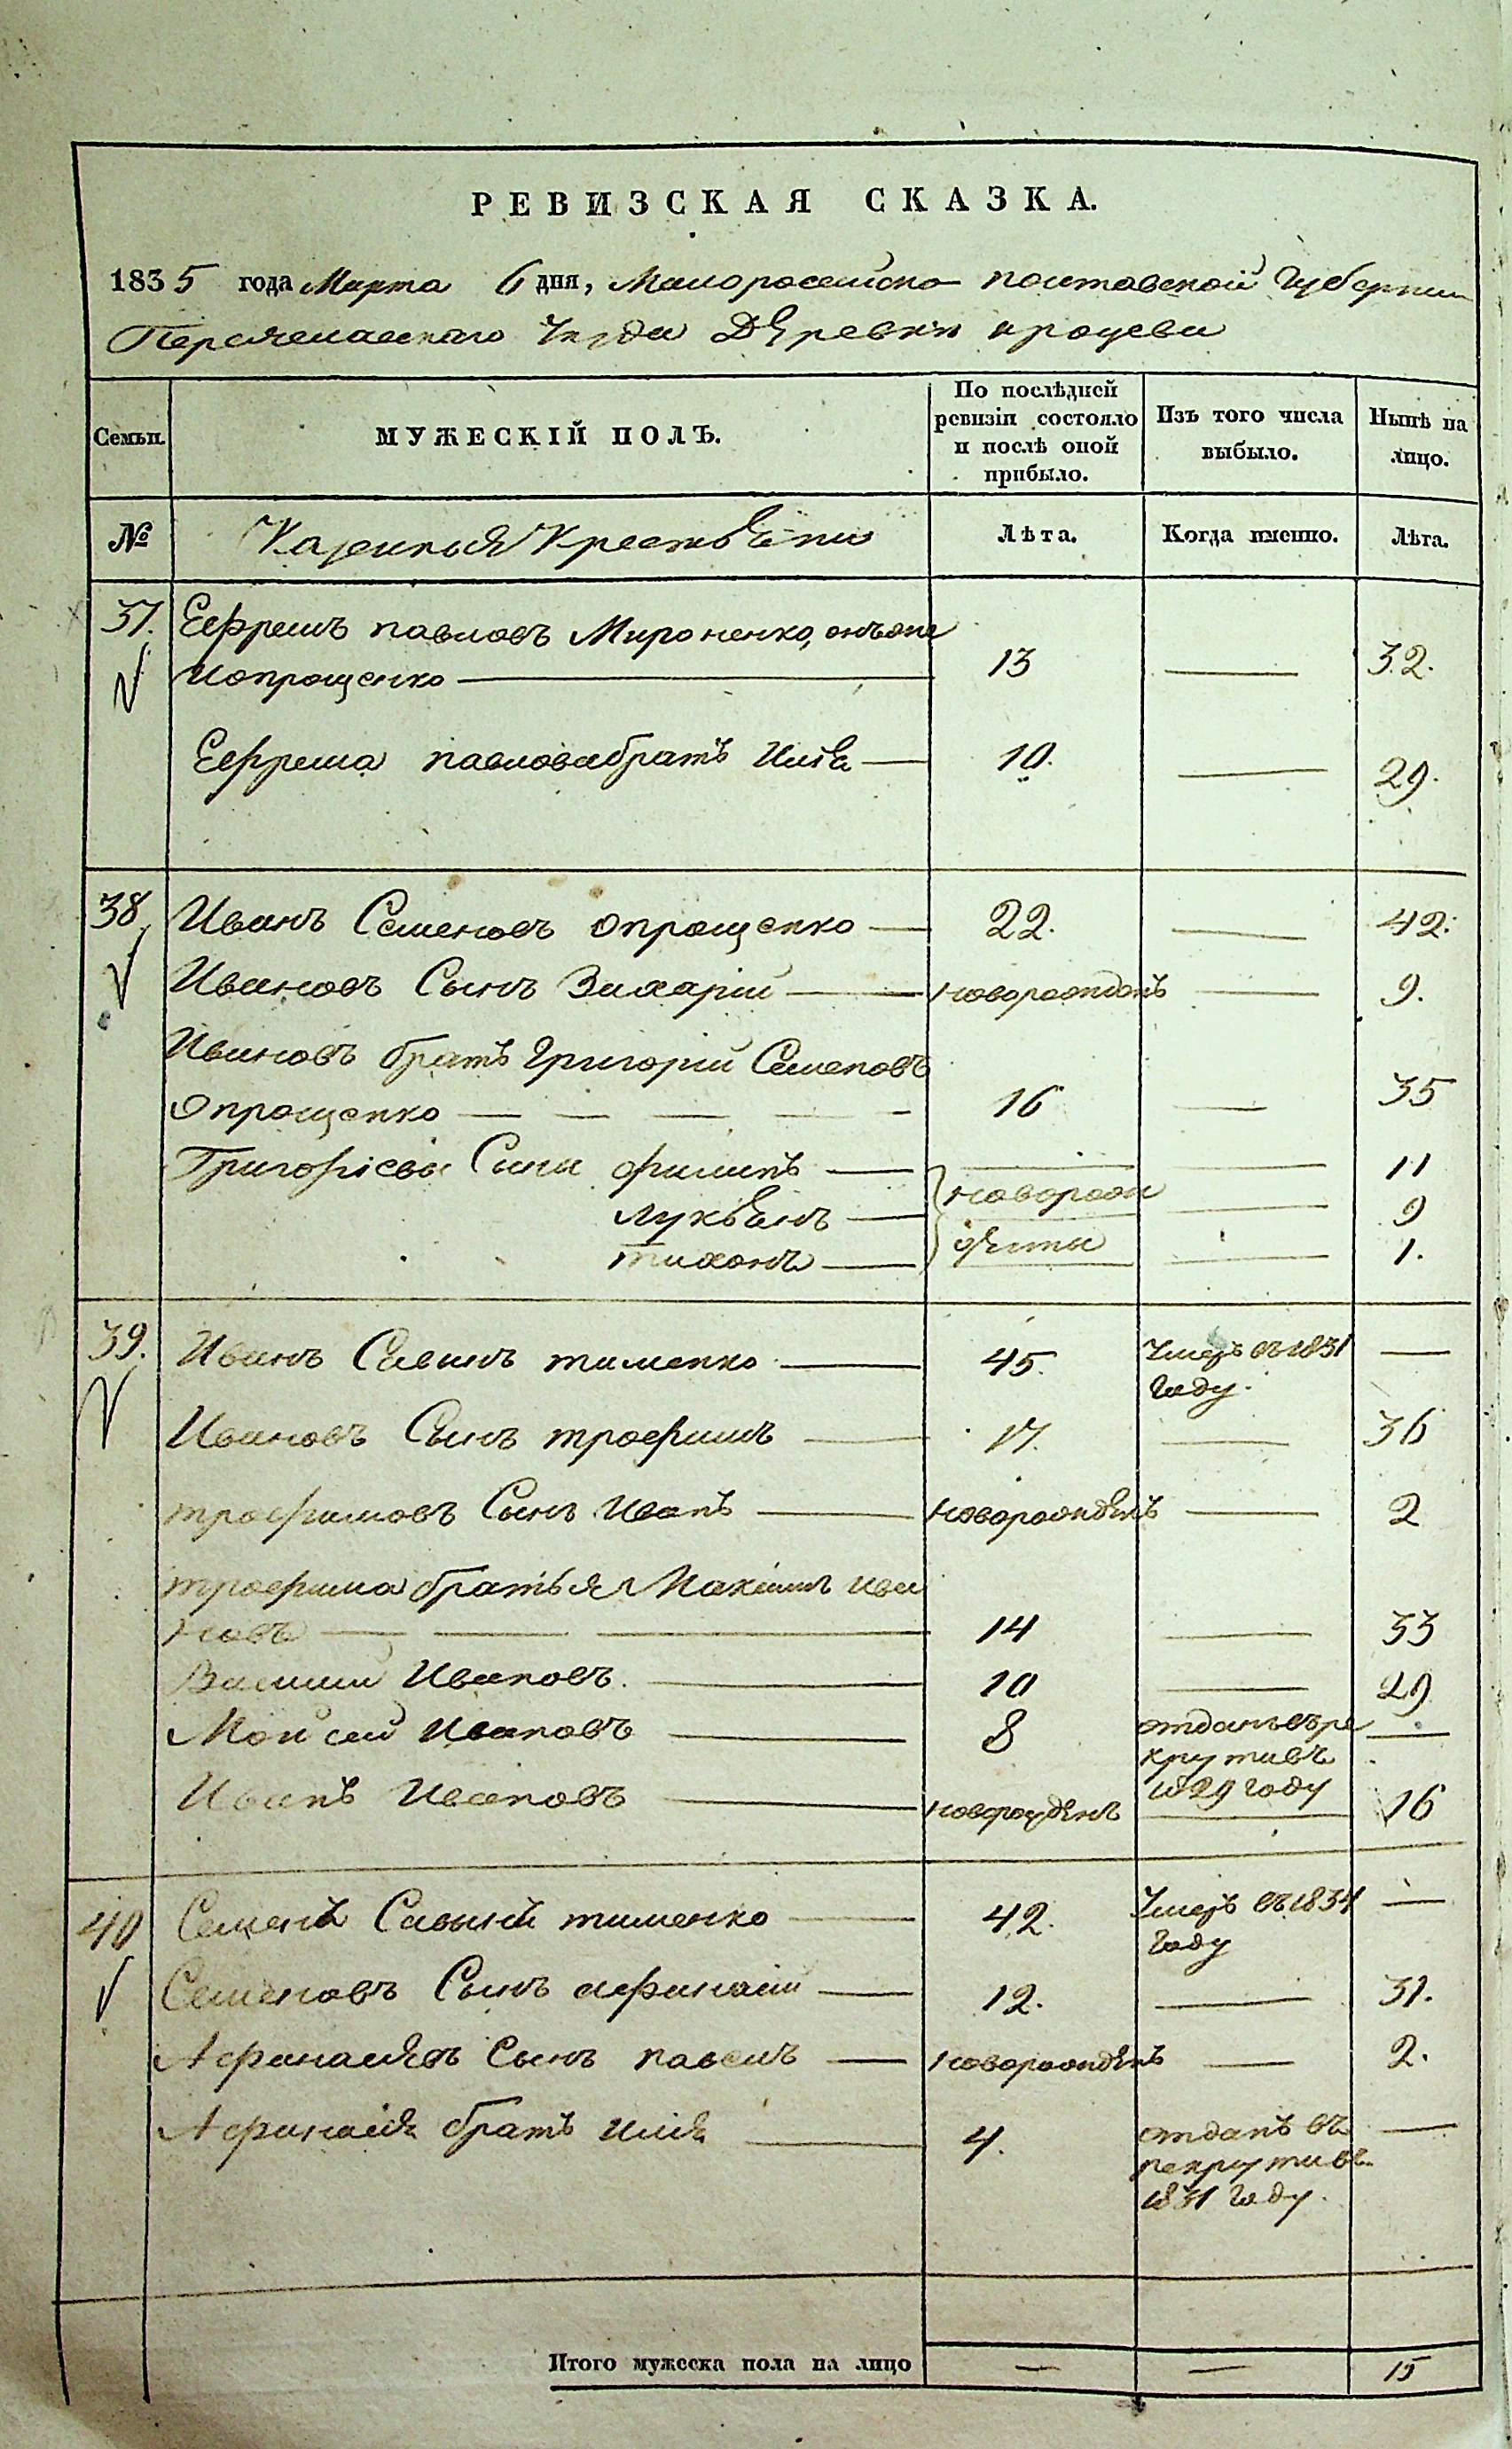 РЕВИЗСКАЯ СКАЗКА.
1835 года Марта 6 дня, Малоросейско полтавской Губернии
Переяславскаго Уезда Дѣревни процеви
Семьи. МУЖЕСКІЙ ПОЛЪ. По послѣдней ревизіи состояло и послѣ оной прибыло. Изъ того числа выбыло. Нынѣ на лицо.
№ Казенныя Крестьѣни Лѣта. Когда именно. Лѣта.
37. Ефремъ павловъ Мироненко, онъже
Иопрощенко — 13 — 32.
Ефрема павловабратъ Илѣя — 10. — 29.
38. Иванъ Семеновъ опрощенко — 22. — 42.
Ивановъ Сынъ Захарій — новорожденъ — 9.
Ивановъ братъ Григорій Семеновъ
Опрощенко — — — — — 16 — 35
Григорієвы Сыни филипъ — — — 11
лукѣянъ — новорож — 9
тихонъ — дѣнны — 1.
39. Иванъ Савинъ тименко — 45. Умеръ въ 1831 —
Году.
Ивановъ Сынъ трофимъ — 17. — 36
трофимовъ Сынъ Иванъ — новорожденъ — 2
трофима братья Максимъ Ива
новъ — — — 14 — 33
Василий Ивановъ. — 10 — 29
Мойсей Ивановъ — 8 отданъ въ ре —
крути въ
1829 году
Иванъ Ивановъ — новорожденъ — 16
40 Семенъ Савинъ тименко — 42. Умеръ въ 1834 —
Году
Семеновъ Сынъ афанасій — 12. — 31.
Афанасіевъ Сынъ павелъ — новорожденъ — 2.
Афанасія братъ илія — 4. отданъ въ —
рекрути въ
1831 Году.
Итого мужеска пола на лицо — — 15